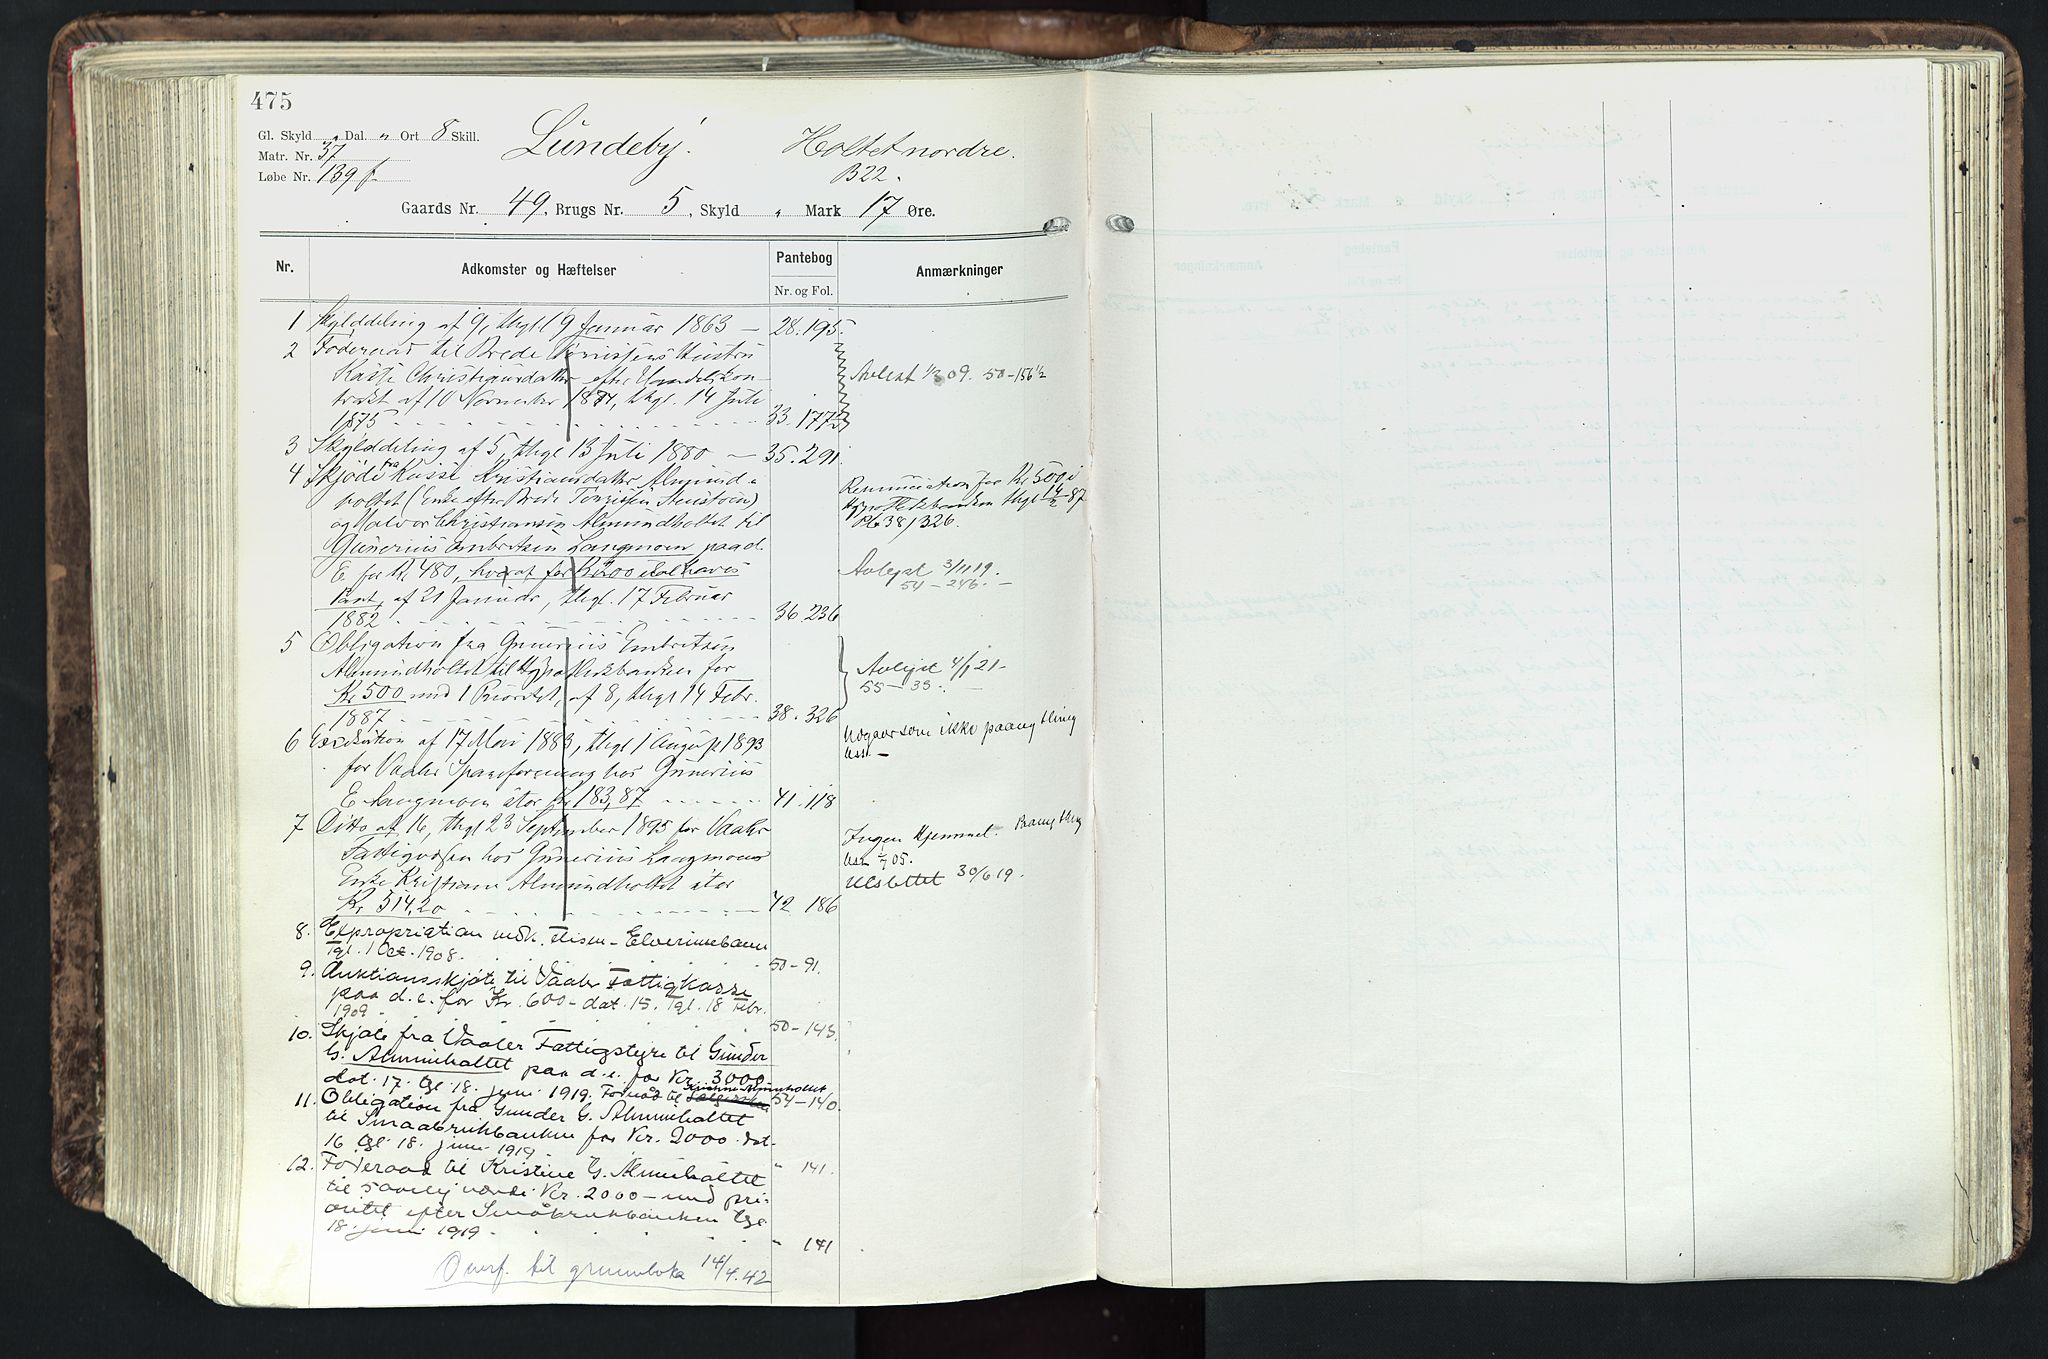 475
Gl. Skyld " Dal. " Ort 8 Skill.
Matr. Nr. 37
Løbe Nr. 139 f
Lundeby.
Holtet nordre.
B22.
Gaards Nr. 49, Brugs Nr. 5, Skyld " Mark 17 Øre.
Nr. Adkomster og Hæftelser Pantebog Anmærkninger
Nr. og Fol.
1 Skylddeling af 9, thgl 9 Januar 1863 — 28.195.
2 Føderaad til Brede Hustru
Christiansdatter efter
trakt af 10 November 1874, thgl. 14 Juli
1875 33.177
Avlest 09. 50-156½
3 Skylddeling af 5, thgl 13 Juli 1880 — 35.291.
4 Skjøde fra Kristiansdatter Almind-
holtet (Enke efter Brede
og Halvor Christiansen Almindholtet til
Gunerius Embretsen Langmoen paa d.
E. for Kr. 480, hvoraf for Kr 200 indehaves
Pant, af 21 Januar, thgl. 17 Februar
1882 36.236
Renunciation for Kr 500 i
Hypothekbanken thgl 14/2 87
Pb 38/326.
Avlyst 3/11 19.
54-246.
5 Obligation fra Gunerius Embretsen
Almindholtet til Hypothekbanken for
Kr 500 med 1 Prioritet, af 8, thgl 14 Febr.
1887 38.326
Avlyst 4/1 21-
55-33.
6 Execution af 17 Mai 1883, thgl 1 August 1893
for Vaaler Spareforening hos Gunerius
E. Langmoen stor Kr 183,87 41.118
Udgaar som ikke paany thing
læst -
7 Ditto af 16, thgl 23 September 1895 for Vaaler
Fattigvæsen hos Gunerius Langmoens
Enke Kristiane Almindholtet stor
Kr. 314,20 42 186
Ingen Hjemmel. Paany thing
læst 05.
Utslettet 30/6 19.
8. Expropriation vedk. Flisen-Elverumbanen
Tgl. 1 Oct. 1908. 50-91.
9. Auktionsskjøte til Vaaler Fattigkasse
paa d. e. for Kr. 600 - dat. 15. Tgl. 18 Febr.
1909 50-143.
10. Skjøte fra Vaaler Fattigstyre til Gunder
G. Almindholtet paa d. e. for Kr. 3000
dat. 17. tgl. 18. juni 1919. Forraad til 54-140.
11. Obligation fra Gunder G. Almindholtet
til Smaabrukbanken for Kr. 2000 dat.
16 tgl. 18. juni 1919 " 141.
12. Føderaad til Kristine G. Almindholtet
til 5aarlig værdi Kr. 2000 - med pri-
oritet efter Småbrukbanken tgl.
18. juni 1919. " 141
Overf. til grunnboka 14/4.42